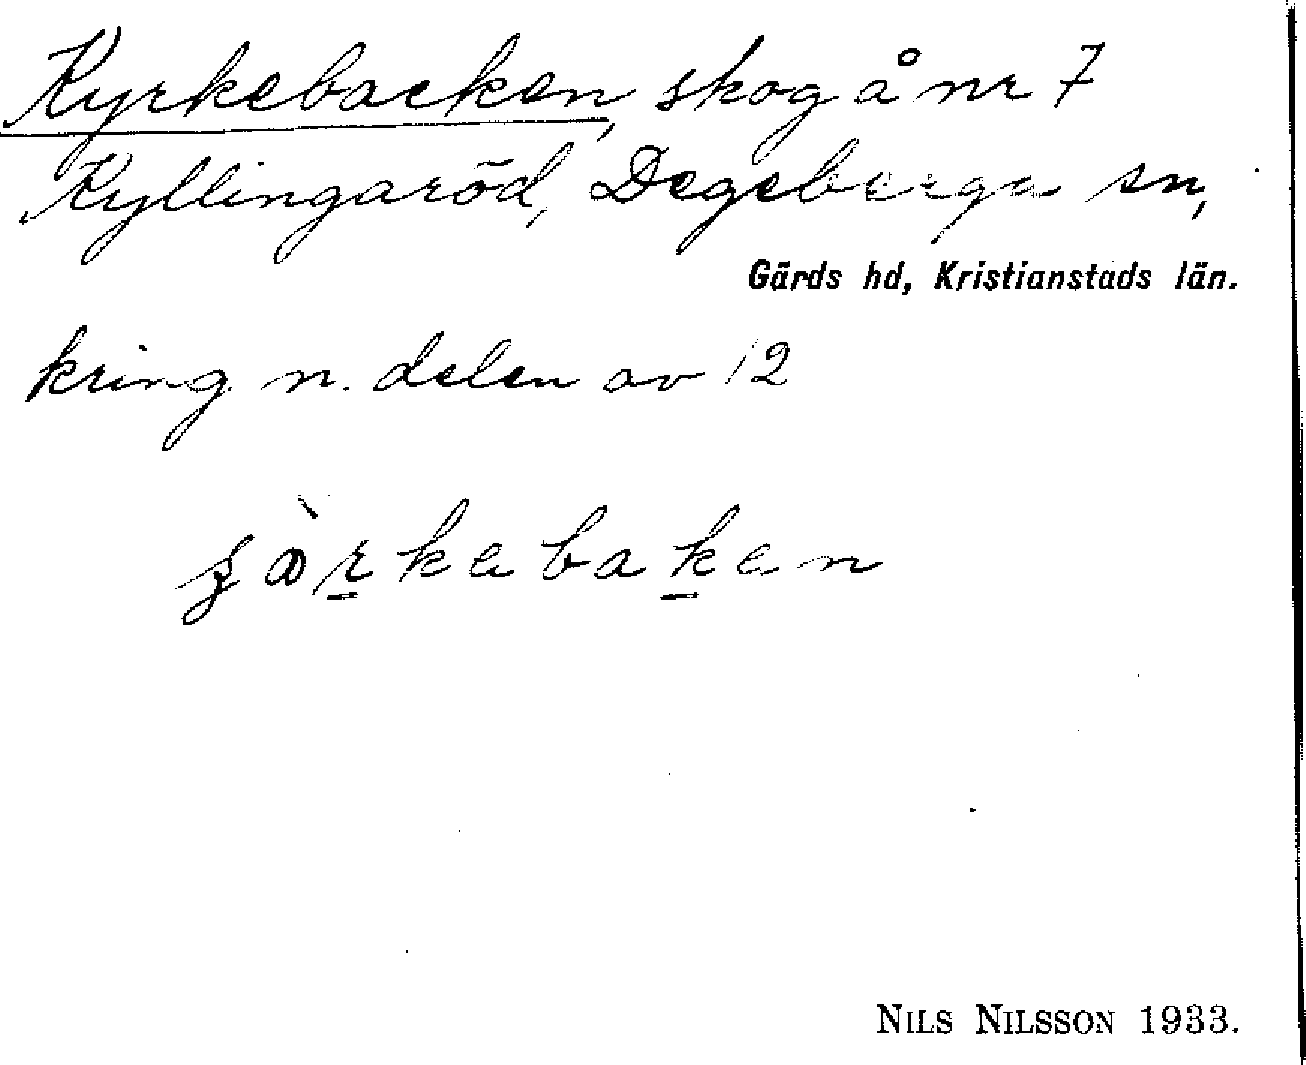 Kyrkebacken, skog å nr 7
Kyllingaröd, Degeberga sn,
Gärds hd, Kristianstads län.
kring n. delen av 12
NILS NILSSON 1933.